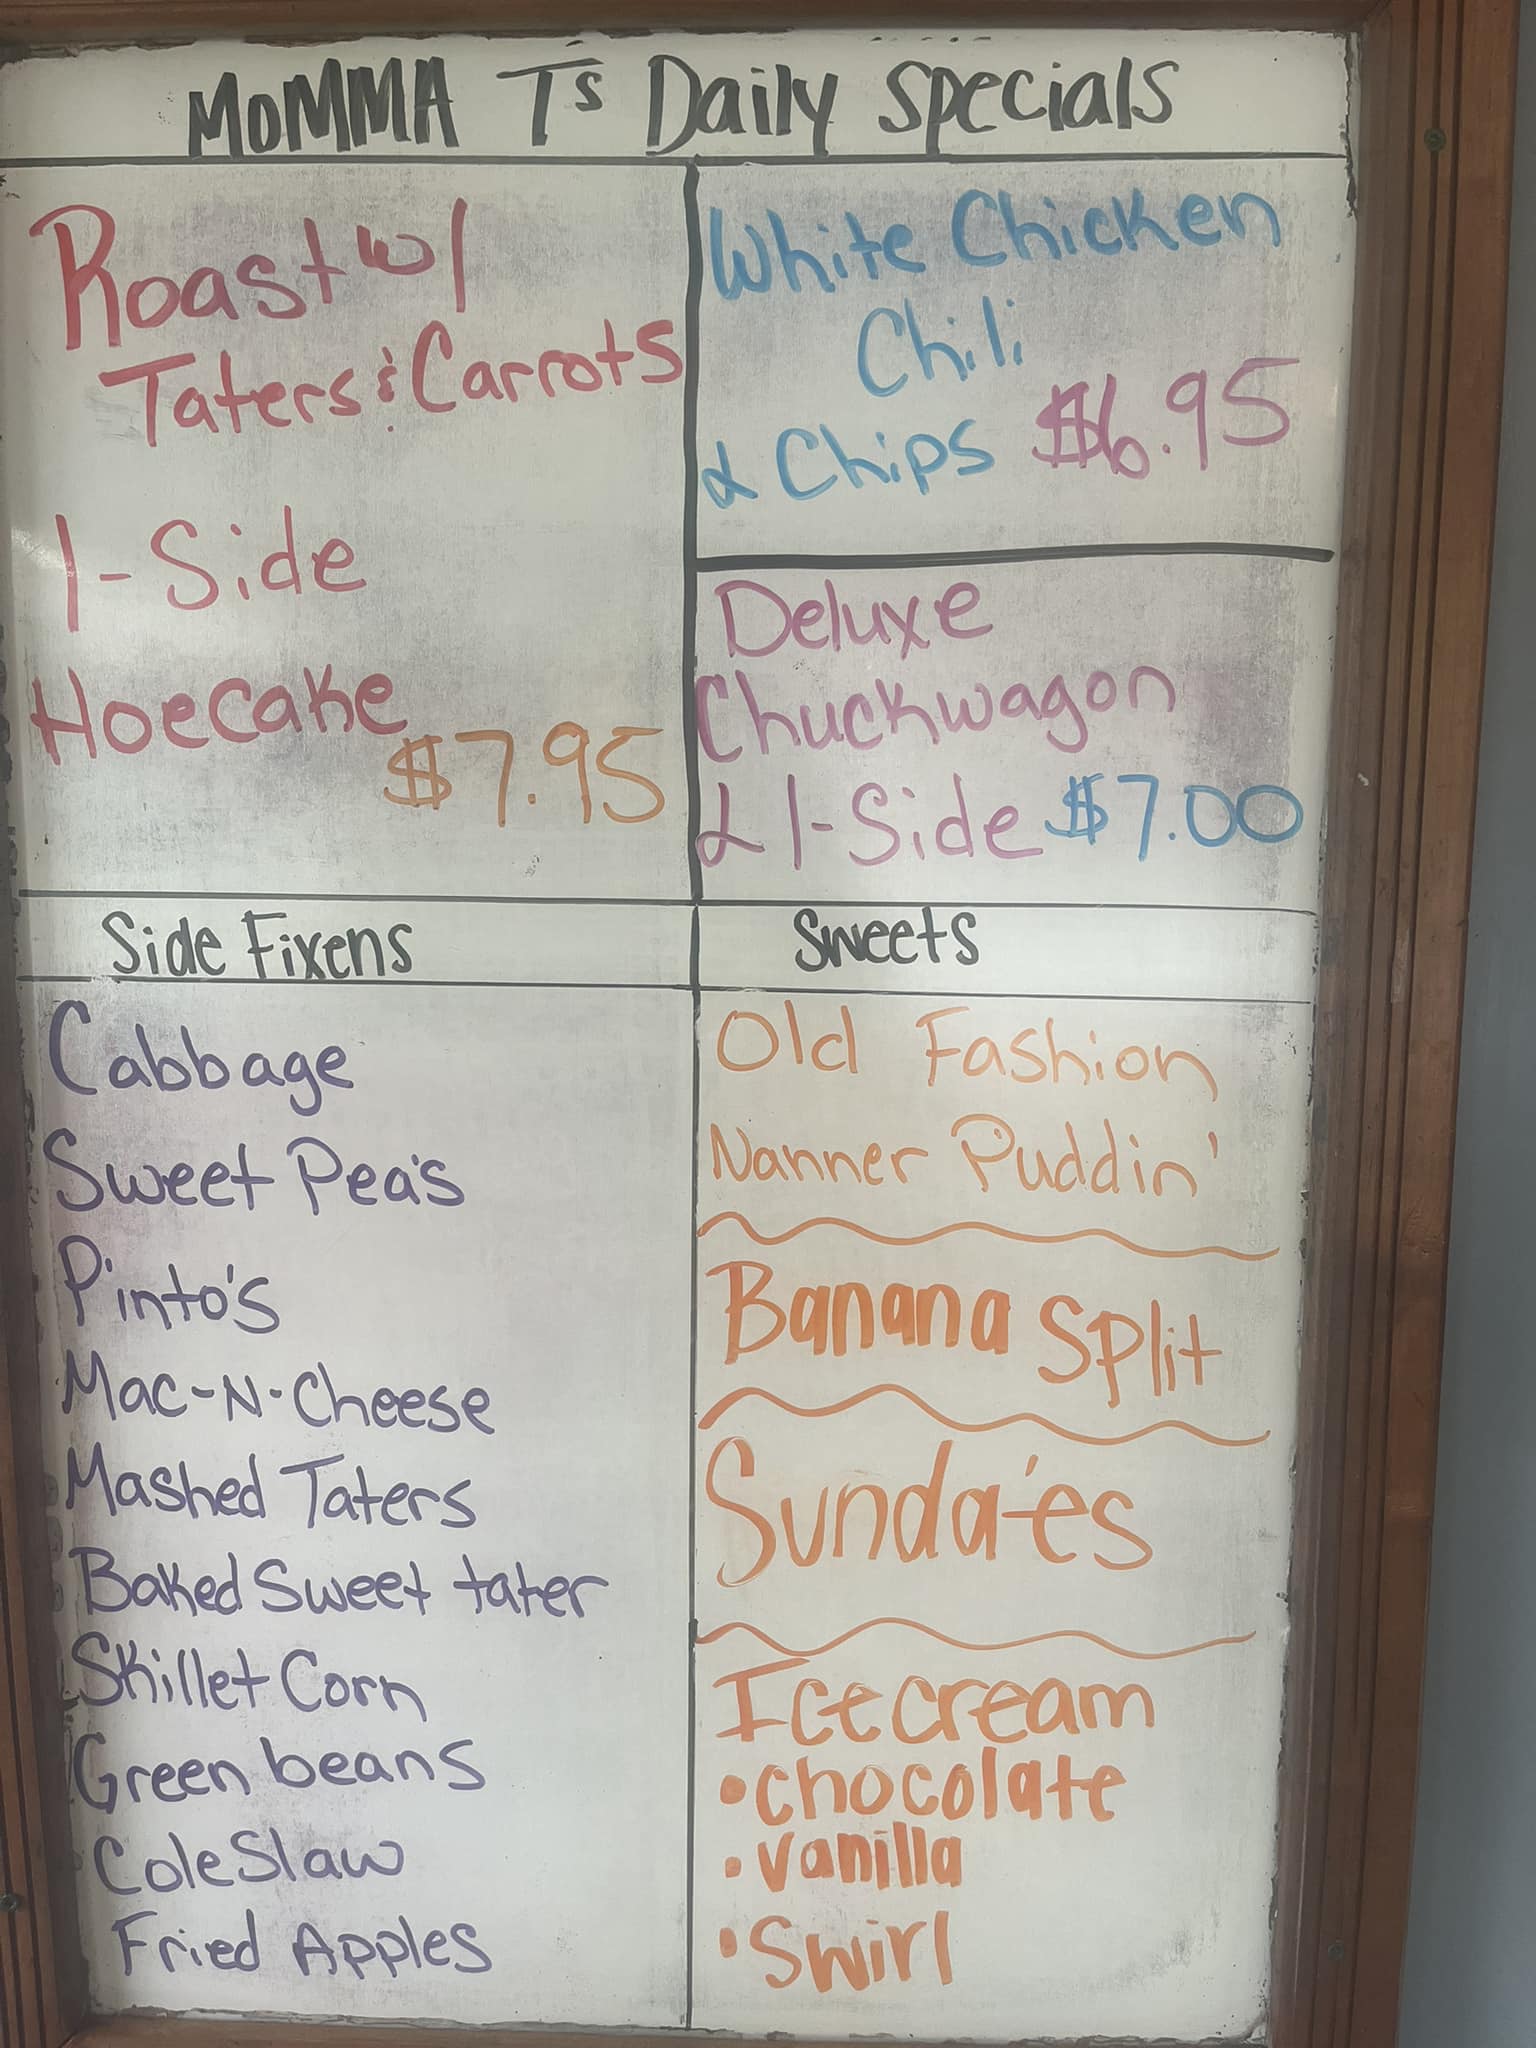 MoMMA Ts Daily Specials
Roast w/
Taters & Carrots
1-Side
Hoecake
$7.95
White Chicken
Chili
& Chips $6.95
Deluxe
Chuckwagon
& 1-Side $7.00
Side Fixens
Cabbage
Sweet Pea's
Pinto's
Mac-N-Cheese
Mashed Taters
Baked Sweet tater
Skillet Corn
Green beans
Cole Slaw
Fried Apples
Sweets
Old Fashion
Nanner Puddin'
Banana Split
Sunda'es
Ice cream
•chocolate
•vanilla
•Swirl